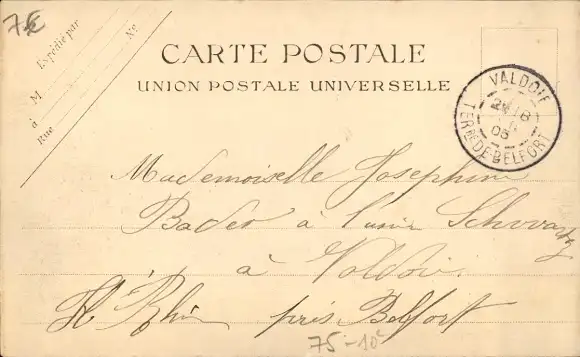 7€
Expédié par
M
Nº
à
Rue
CARTE POSTALE
UNION POSTALE UNIVERSELLE
VALDOIE
24 8
06
TERRRE DE BELFORT
Mademoiselle Josephine
Bader à l'usine Schwartz
à Valdoie
Ht Rhin près Belfort
75-10